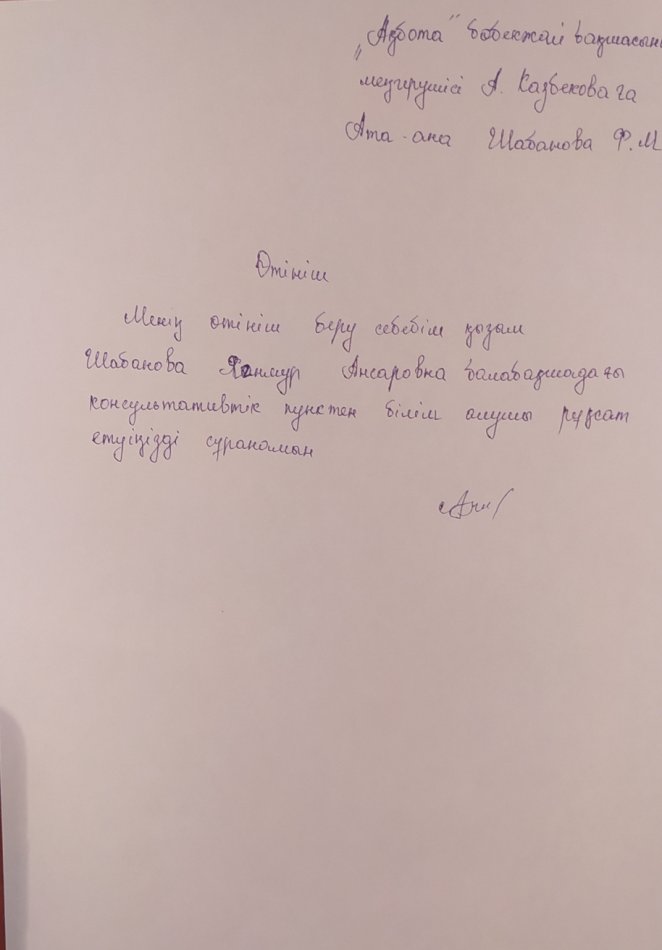 „Ақбота" бөбекжай бақшасының
меңгерушісі А. Казбековаға
Ата-ана Шабанова Ф.М
Өтініш
Менің өтініш беру себебім қызым
Шабанова Ансаровна балабақшадағы
консультативтік пунктен білім алушы рұқсат
етуіңізді сұранамын